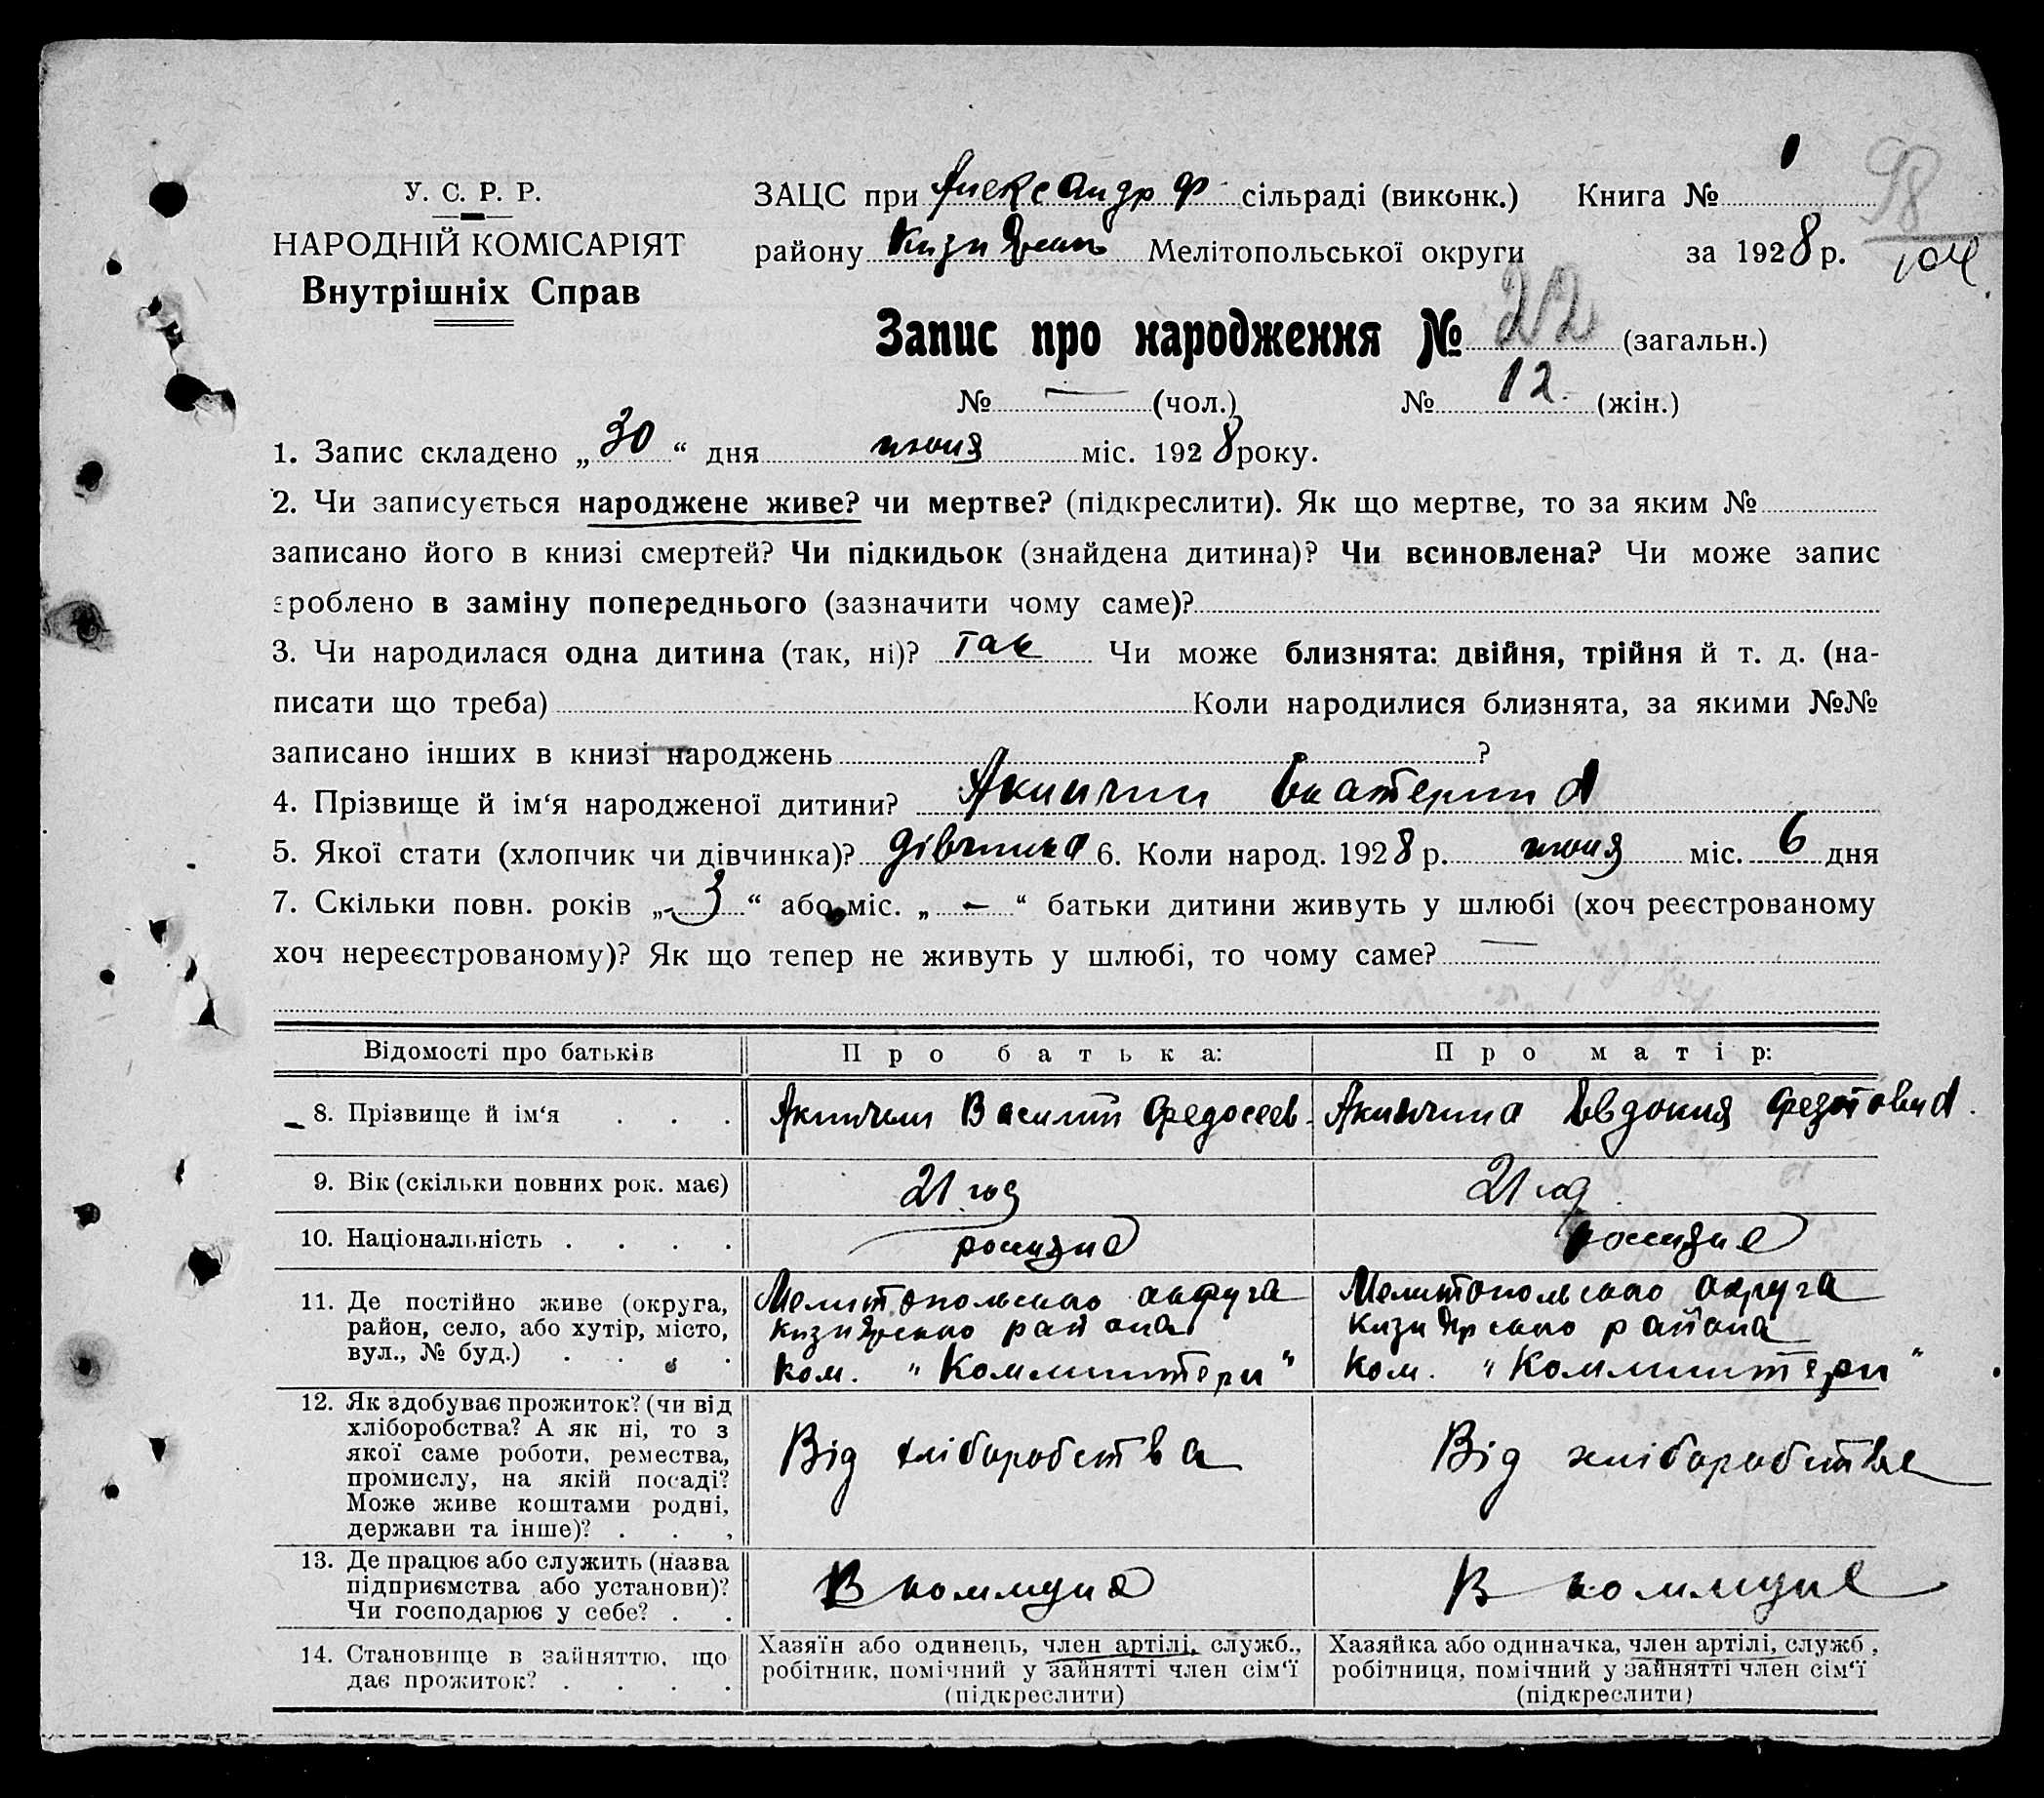 У. С. Р. Р.
НАРОДНІЙ КОМІСАРІЯТ
Внутрішніх Справ
ЗАЦС при Александр ф сільраді (виконк.) Книга №
98
району Мелітопольської округи за 1928 р.
104
Запис про народження № 22 (загальн.)
№ — (чол.) № 12 (жін.)
1. Запис складено „30“ дня июня міс. 1928 року.
2. Чи записується народжене живе? чи мертве? (підкреслити). Як що мертве, то за яким №
записано його в книзі смертей? Чи підкидьок (знайдена дитина)? Чи всиновлена? Чи може запис
зроблено в заміну попереднього (зазначити чому саме)?
3. Чи народилася одна дитина (так, ні)? так Чи може близнята: двійня, трійня й т. д. (на-
писати що треба) Коли народилися близнята, за якими №№
записано інших в книзі народжень ?
4. Прізвище й ім‘я народженої дитини? Акинчин Екатерина
5. Якої стати (хлопчик чи дівчинка)? дівчинка 6. Коли народ. 1928 р. июня міс. 6 дня
7. Скільки повн. років „3“ або міс. „—“ батьки дитини живуть у шлюбі (хоч реєстрованому
хоч нереєстрованому)? Як що тепер не живуть у шлюбі, то чому саме? —
Відомості про батьків Про батька: Про матір:
8. Прізвище й ім‘я . . . Акинчин Василий Федосеев. Акинчина Евдокия Федотовна.
9. Вік (скільки повних рок. має) 21 год 21 год
10. Національність . . . .
11. Де постійно живе (округа,
район, село, або хутір, місто,
вул., № буд.) . . . .
Мелитопольского округа
Кизиярского района
Ком. „Комминтерн“
Мелитопольского округа
Кизиярского района
Ком. „Комминтерн“
12. Як здобуває прожиток? (чи від
хліборобства? А як ні, то з
якої саме роботи, ремества,
промислу, на якій посаді?
Може живе коштами родні,
держави та інше)? . . .
Від хліборобства
Від хліборобства
13. Де працює або служить (назва
підприємства або установи)?
Чи господарює у себе? . .
В коммуне
В коммуне
14. Становище в зайняттю, що
дає прожиток? . . . .
Хазяїн або одинець, член артілі, служб.,
робітник, помічний у зайнятті член сім‘ї
(підкреслити)
Хазяйка або одиначка, член артілі, служб,
робітниця, помічний у зайнятті член сім‘ї
(підкреслити)